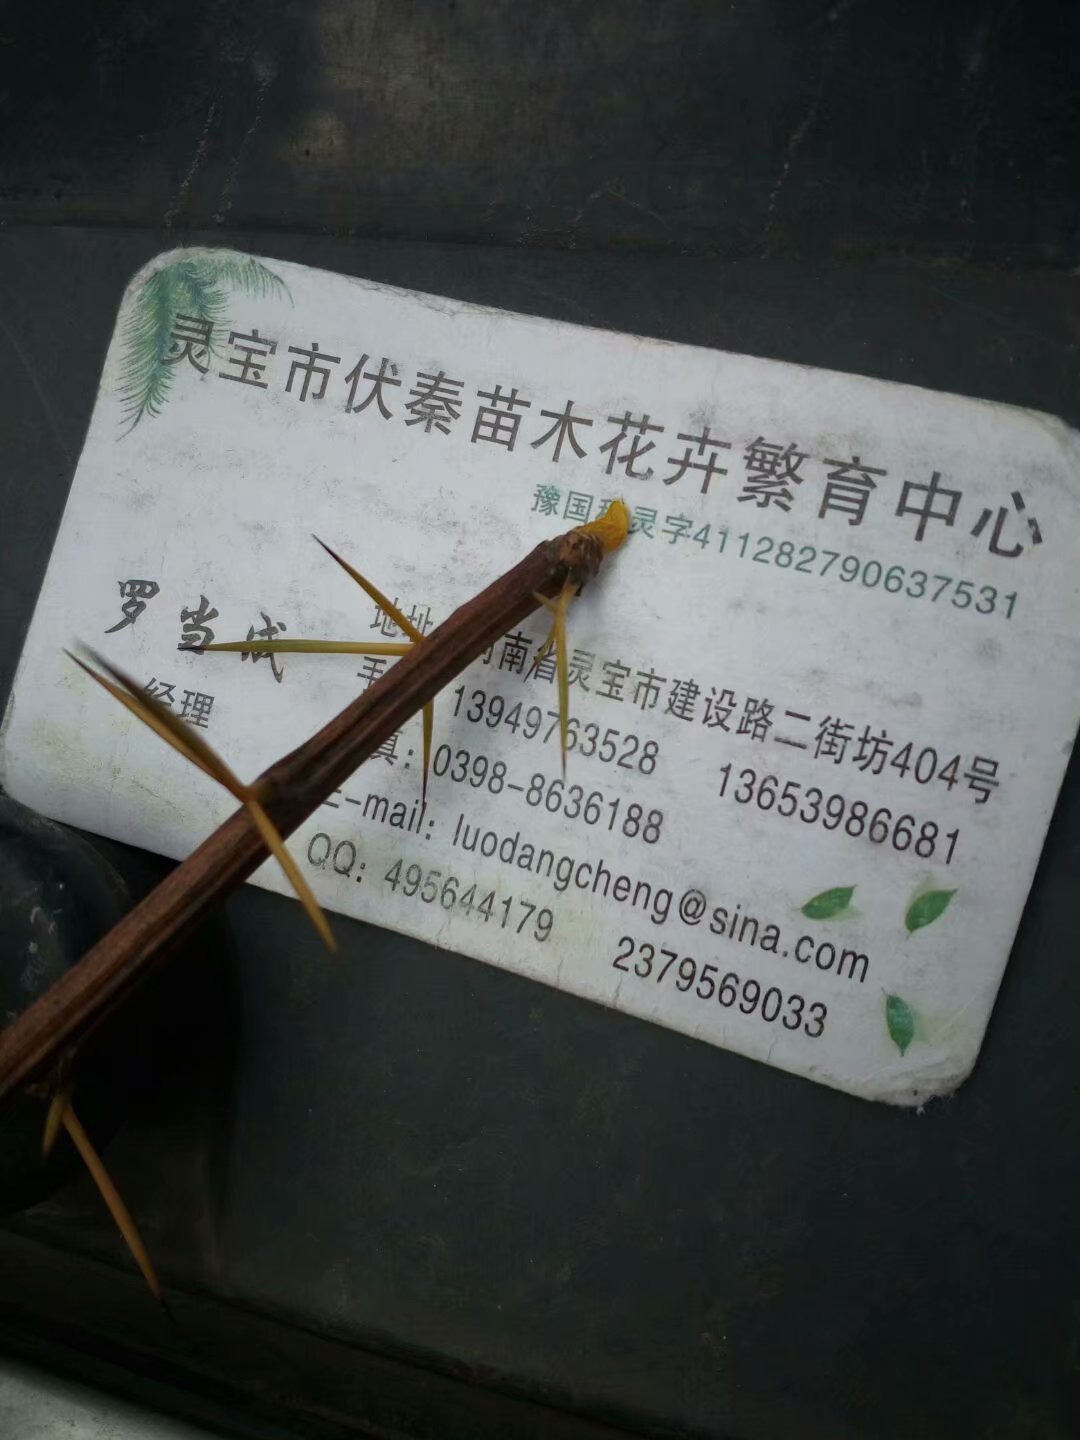 灵宝市伏秦苗木花卉繁育中心
豫国 灵字411282790637531
罗当成
经理
地址 河南省灵宝市建设路二街坊404号
13949763528 13653986681
真: 0398-8636188
E-mail: luodangcheng@sina.com
QQ: 495644179 2379569033